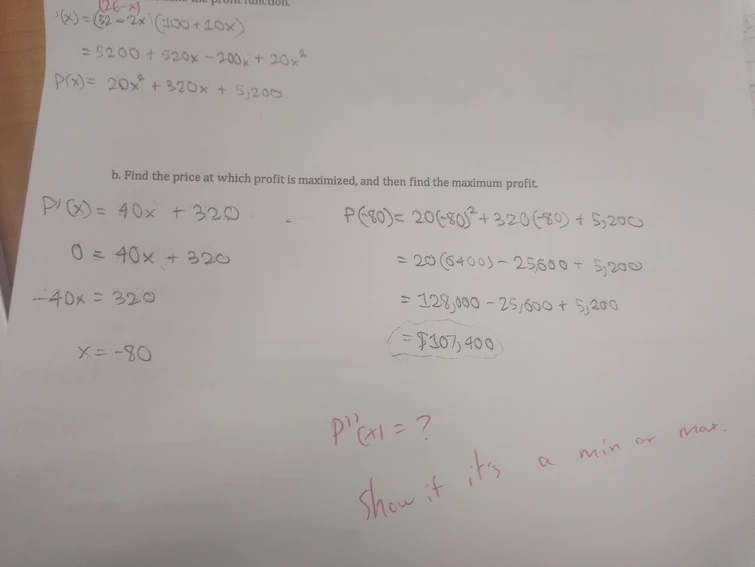 (26-x)
profit function.
'(x) = (52 - 2x) (100 + 10x)
= 5200 + 520x - 200x + 20x²
P(x) = 20x² + 320x + 5,200
b. Find the price at which profit is maximized, and then find the maximum profit.
P'(x) = 40x + 320
0 = 40x + 320
-40x = 320
x = -80
P(-80) = 20(-80)² + 320(-80) + 5,200
= 20(6400) - 25,600 + 5,200
= 128,000 - 25,600 + 5,200
= $107,400
P''(x) = ?
Show if it's a min or max.